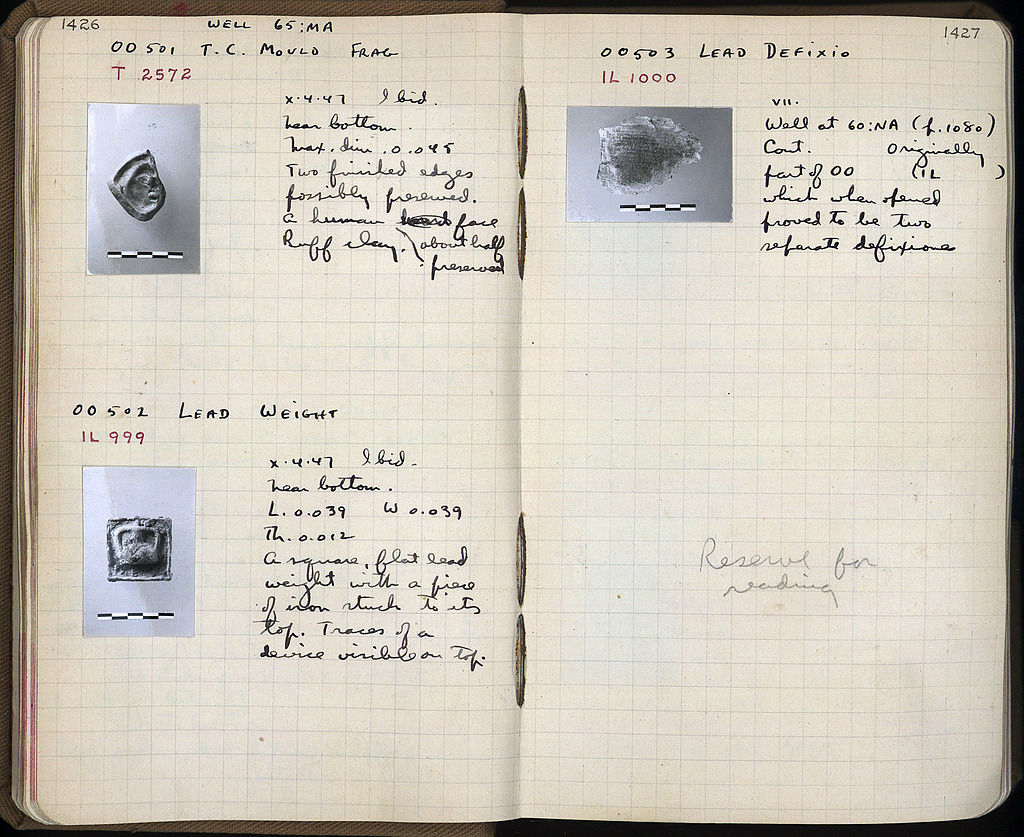 1426
WELL 65:MA
OO 501 T.C. MOULD FRAG
T 2572
x.4.47 Ibid.
near bottom.
Max. dim. 0.045
Two finished edges
possibly preserved.
A human face
Buff clay. about half
preserved
OO 502 LEAD WEIGHT
IL 999
x.4.47 Ibid.
near bottom.
L. 0.039 W 0.039
Th. 0.012
A square, flat lead
weight with a piece
of iron stuck to its
top. Traces of a
device visible on top.
1427
OO 503 LEAD DEFIXIO
IL 1000
VII.
Well at 60:NA (p.1080)
Cont. Originally
part of OO (IL )
which when opened
proved to be two
separate defixiones
Reserve for
reading